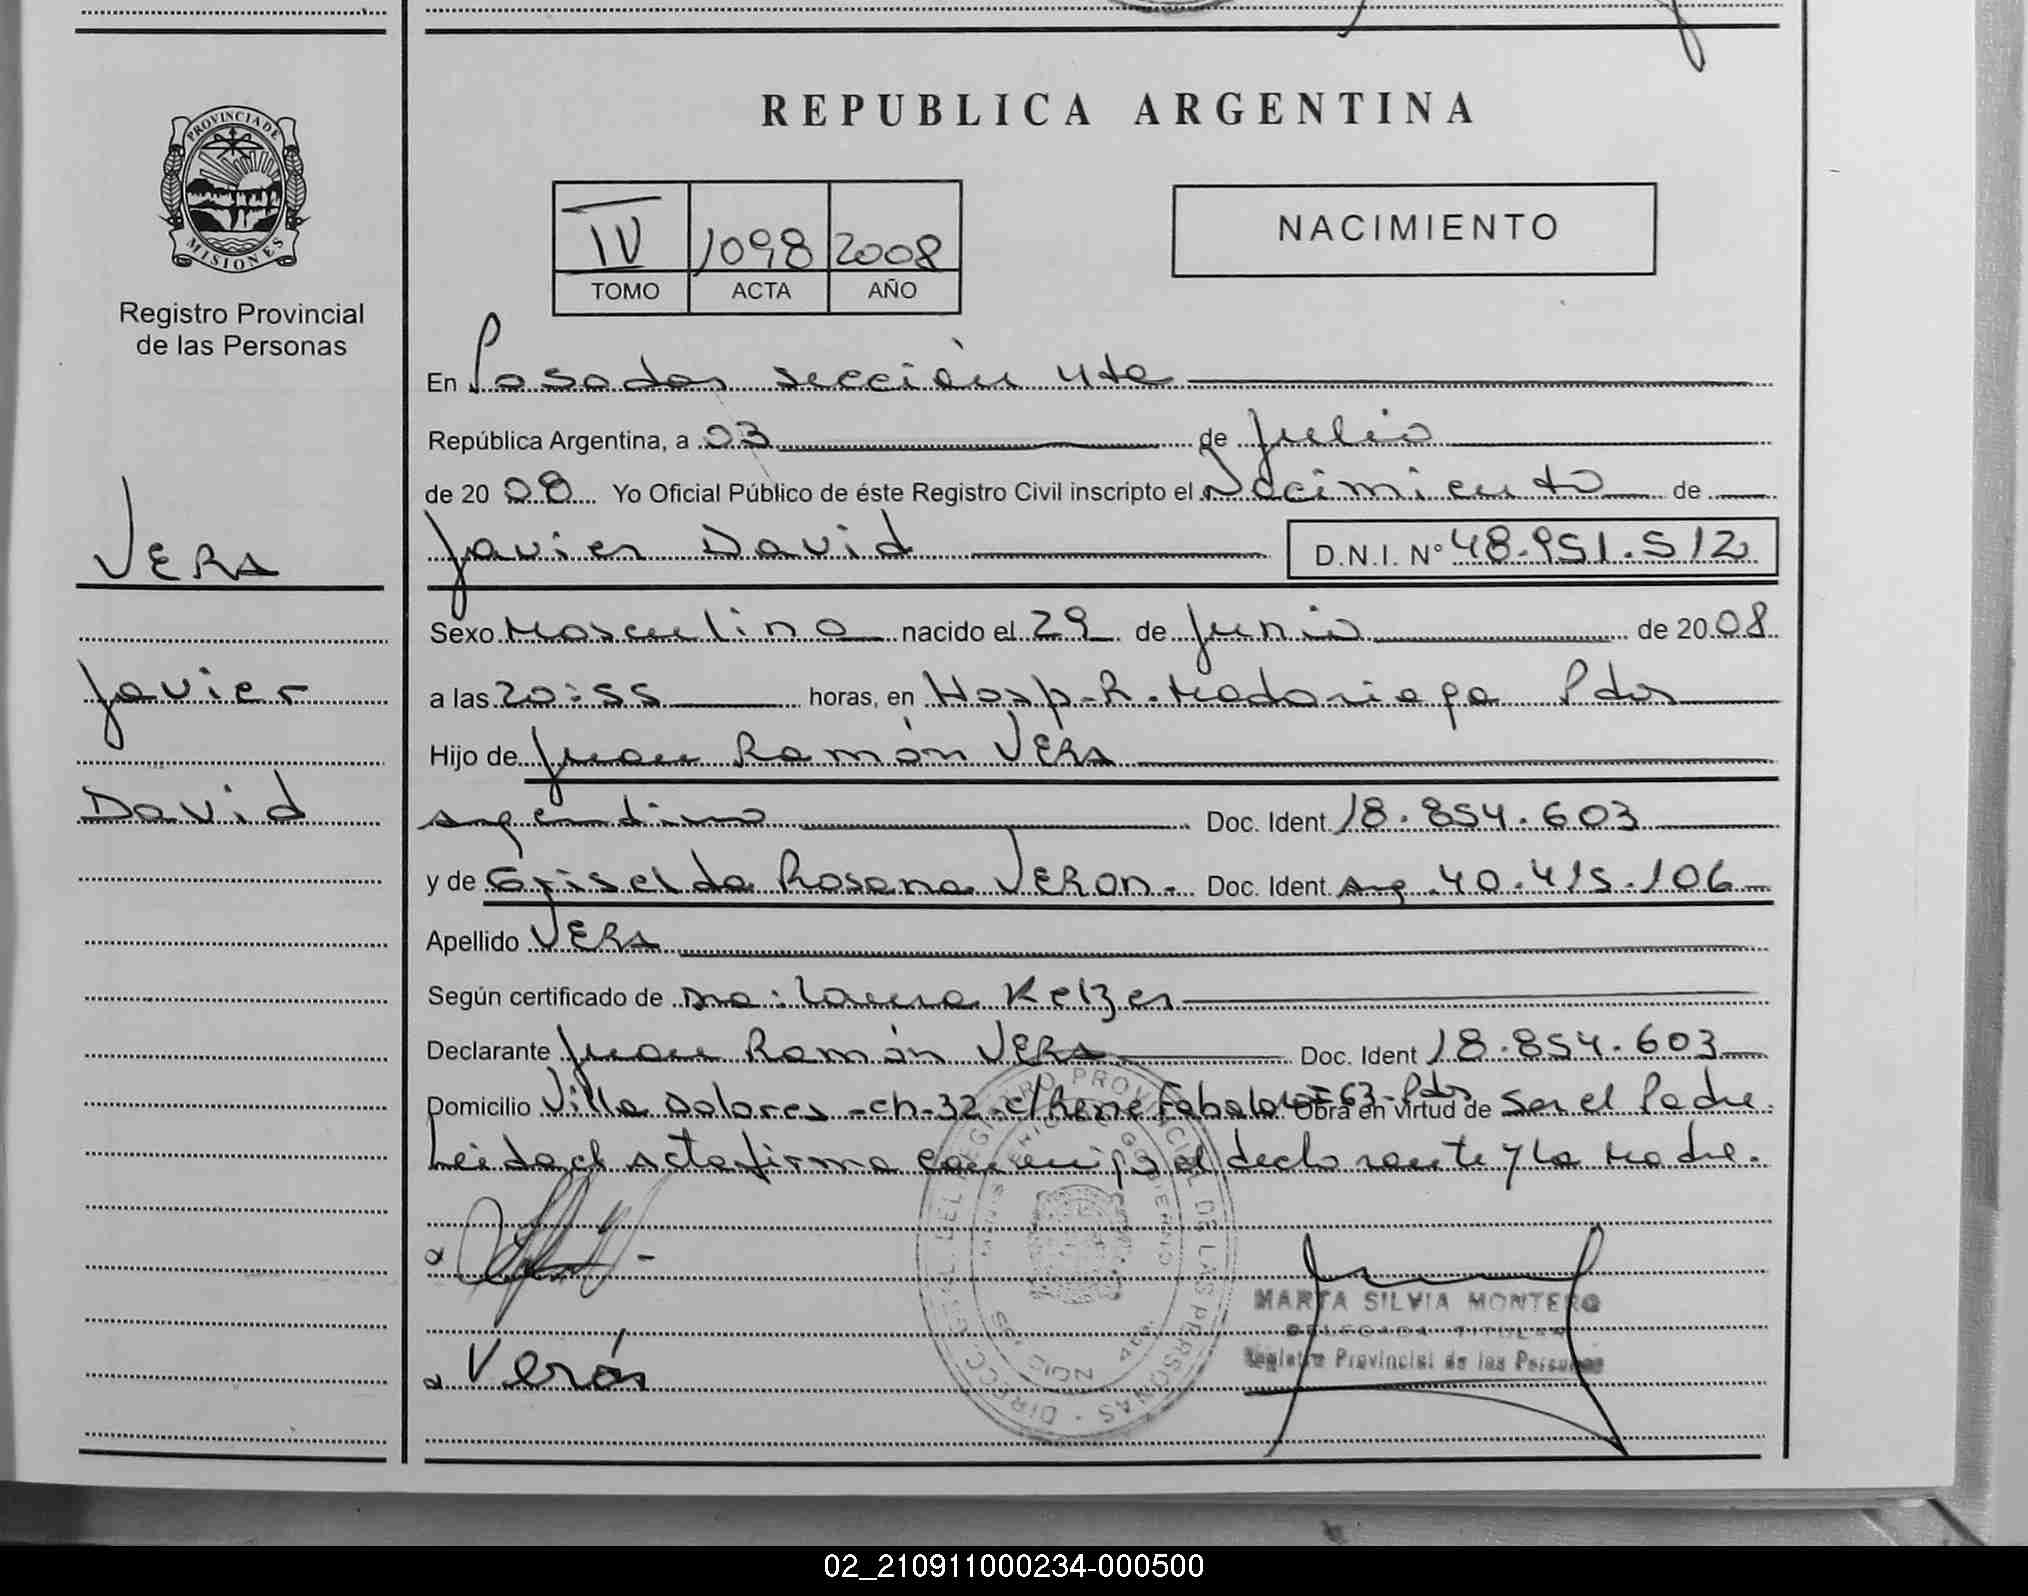 REPUBLICA ARGENTINA
PROVINCIA DE MISIONES
Registro Provincial
de las Personas
IV 1098 2008
TOMO ACTA AÑO
NACIMIENTO
VERA
Javier
David
En Posadas sección 4ta
República Argentina, a 03 de Julio
de 20 08 Yo Oficial Público de éste Registro Civil inscripto el Nacimiento de
Javier David D.N.I. Nº 48.951.512
Sexo Masculino nacido el 29 de Junio de 20 08
a las 20:55 horas, en Hosp. R. Madariaga Pdas
Hijo de Juan Ramón VERA
argentino Doc. Ident. 18.854.603
y de Griselda Rosana VERON. Doc. Ident. Arg. 40.415.106
Apellido VERA
Según certificado de Dra: Laura Kelzer
Declarante Juan Ramón VERA Doc. Ident 18.854.603
Domicilio Villa Dolores - ch-32-c/Rene Fabalo 63-Pdas Obra en virtud de Ser el Padre.
Leida el Acta firma conmigo el declarante y la Madre.
Verón
DIRECC. GRAL. DEL REGISTRO PROVINCIAL DE LAS PERSONAS
MINISTERIO DE GOBIERNO
MARTA SILVIA MONTERO
DELEGADA TITULAR
Registro Provincial de las Personas
02_210911000234-000500